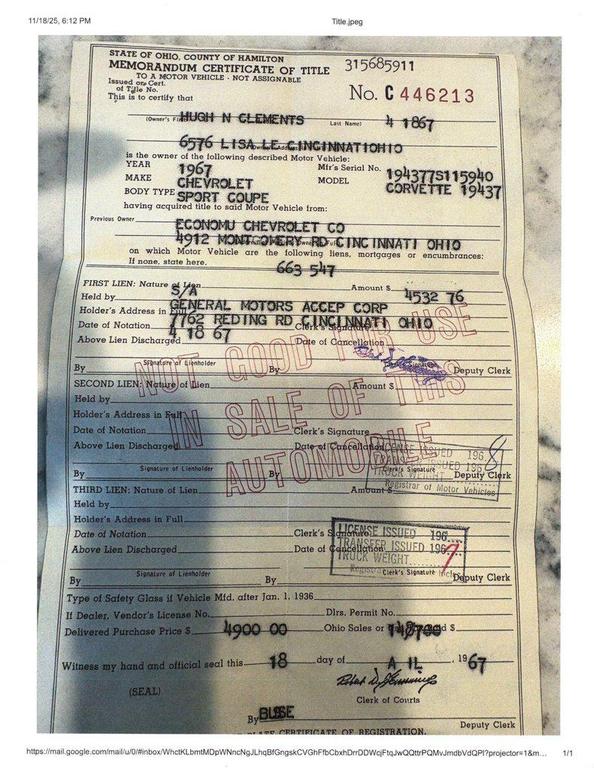 11/18/25, 6:12 PM Title.jpeg
STATE OF OHIO, COUNTY OF HAMILTON
MEMORANDUM CERTIFICATE OF TITLE 315685911
TO A MOTOR VEHICLE - NOT ASSIGNABLE
Issued on Cert.
of Title No. No. C 446213
This is to certify that
HUGH N CLEMENTS 4 1867
(Owner's (Last Name)
6576 LISA LE CINCINNATI OHIO
is the owner of the following described Motor Vehicle:
YEAR 1967 Mfr's Serial No. 194377S115940
MAKE CHEVROLET MODEL CORVETTE 19437
BODY TYPE SPORT COUPE
having acquired title to said Motor Vehicle from:
Previous Owner ECONOMU CHEVROLET CO
4912 MONTGOMERY RD CINCINNATI OHIO
on which Motor Vehicle are the following liens, mortgages or encumbrances:
If none, state here.
663 547
FIRST LIEN: Nature of Lien S/A Amount $ 4532 76
Held by GENERAL MOTORS ACCEP CORP
Holder's Address in Full 7762 REDING RD CINCINNATI OHIO
Date of Notation 4 18 67 Clerk's Signature
Above Lien Discharged Date of Cancellation
Signature of Lienholder
By By Deputy Clerk
NOT GOOD FOR USE
IN SALE OF THIS
AUTOMOBILE
SECOND LIEN: Nature of Lien Amount $
Held by
Holder's Address in Full
Date of Notation Clerk's Signature
Above Lien Discharged Date of Cancellation
LICENSE ISSUED 196 8
TRANSFER ISSUED 196
TRUCK WEIGHT
Registrar of Motor Vehicles
Signature of Lienholder Clerk's Signature
By By Deputy Clerk
THIRD LIEN: Nature of Lien Amount $
Held by
Holder's Address in Full
Date of Notation Clerk's Signature
Above Lien Discharged Date of Cancellation
LICENSE ISSUED 196
TRANSFER ISSUED 196
TRUCK WEIGHT
Signature of Lienholder Clerk's Signature
By By Deputy Clerk
Type of Safety Glass if Vehicle Mfd. after Jan. 1, 1936
If Dealer, Vendor's License No. Dlrs. Permit No.
Delivered Purchase Price $ 4900 00 Ohio Sales or
Witness my hand and official seal this 18 day of A IL , 1967
(SEAL) Clerk of Courts
By BUSSE
Deputy Clerk
CERTIFICATE OF REGISTRATION.
https://mail.google.com/mail/u/0/#inbox/WhctKLbmtMDpWNncNgJLhqBfGngskCVGhFfbCbxhDrrDDWcjFtqJwQQttrPQMvJmdbVdQPl?projector=1&m... 1/1